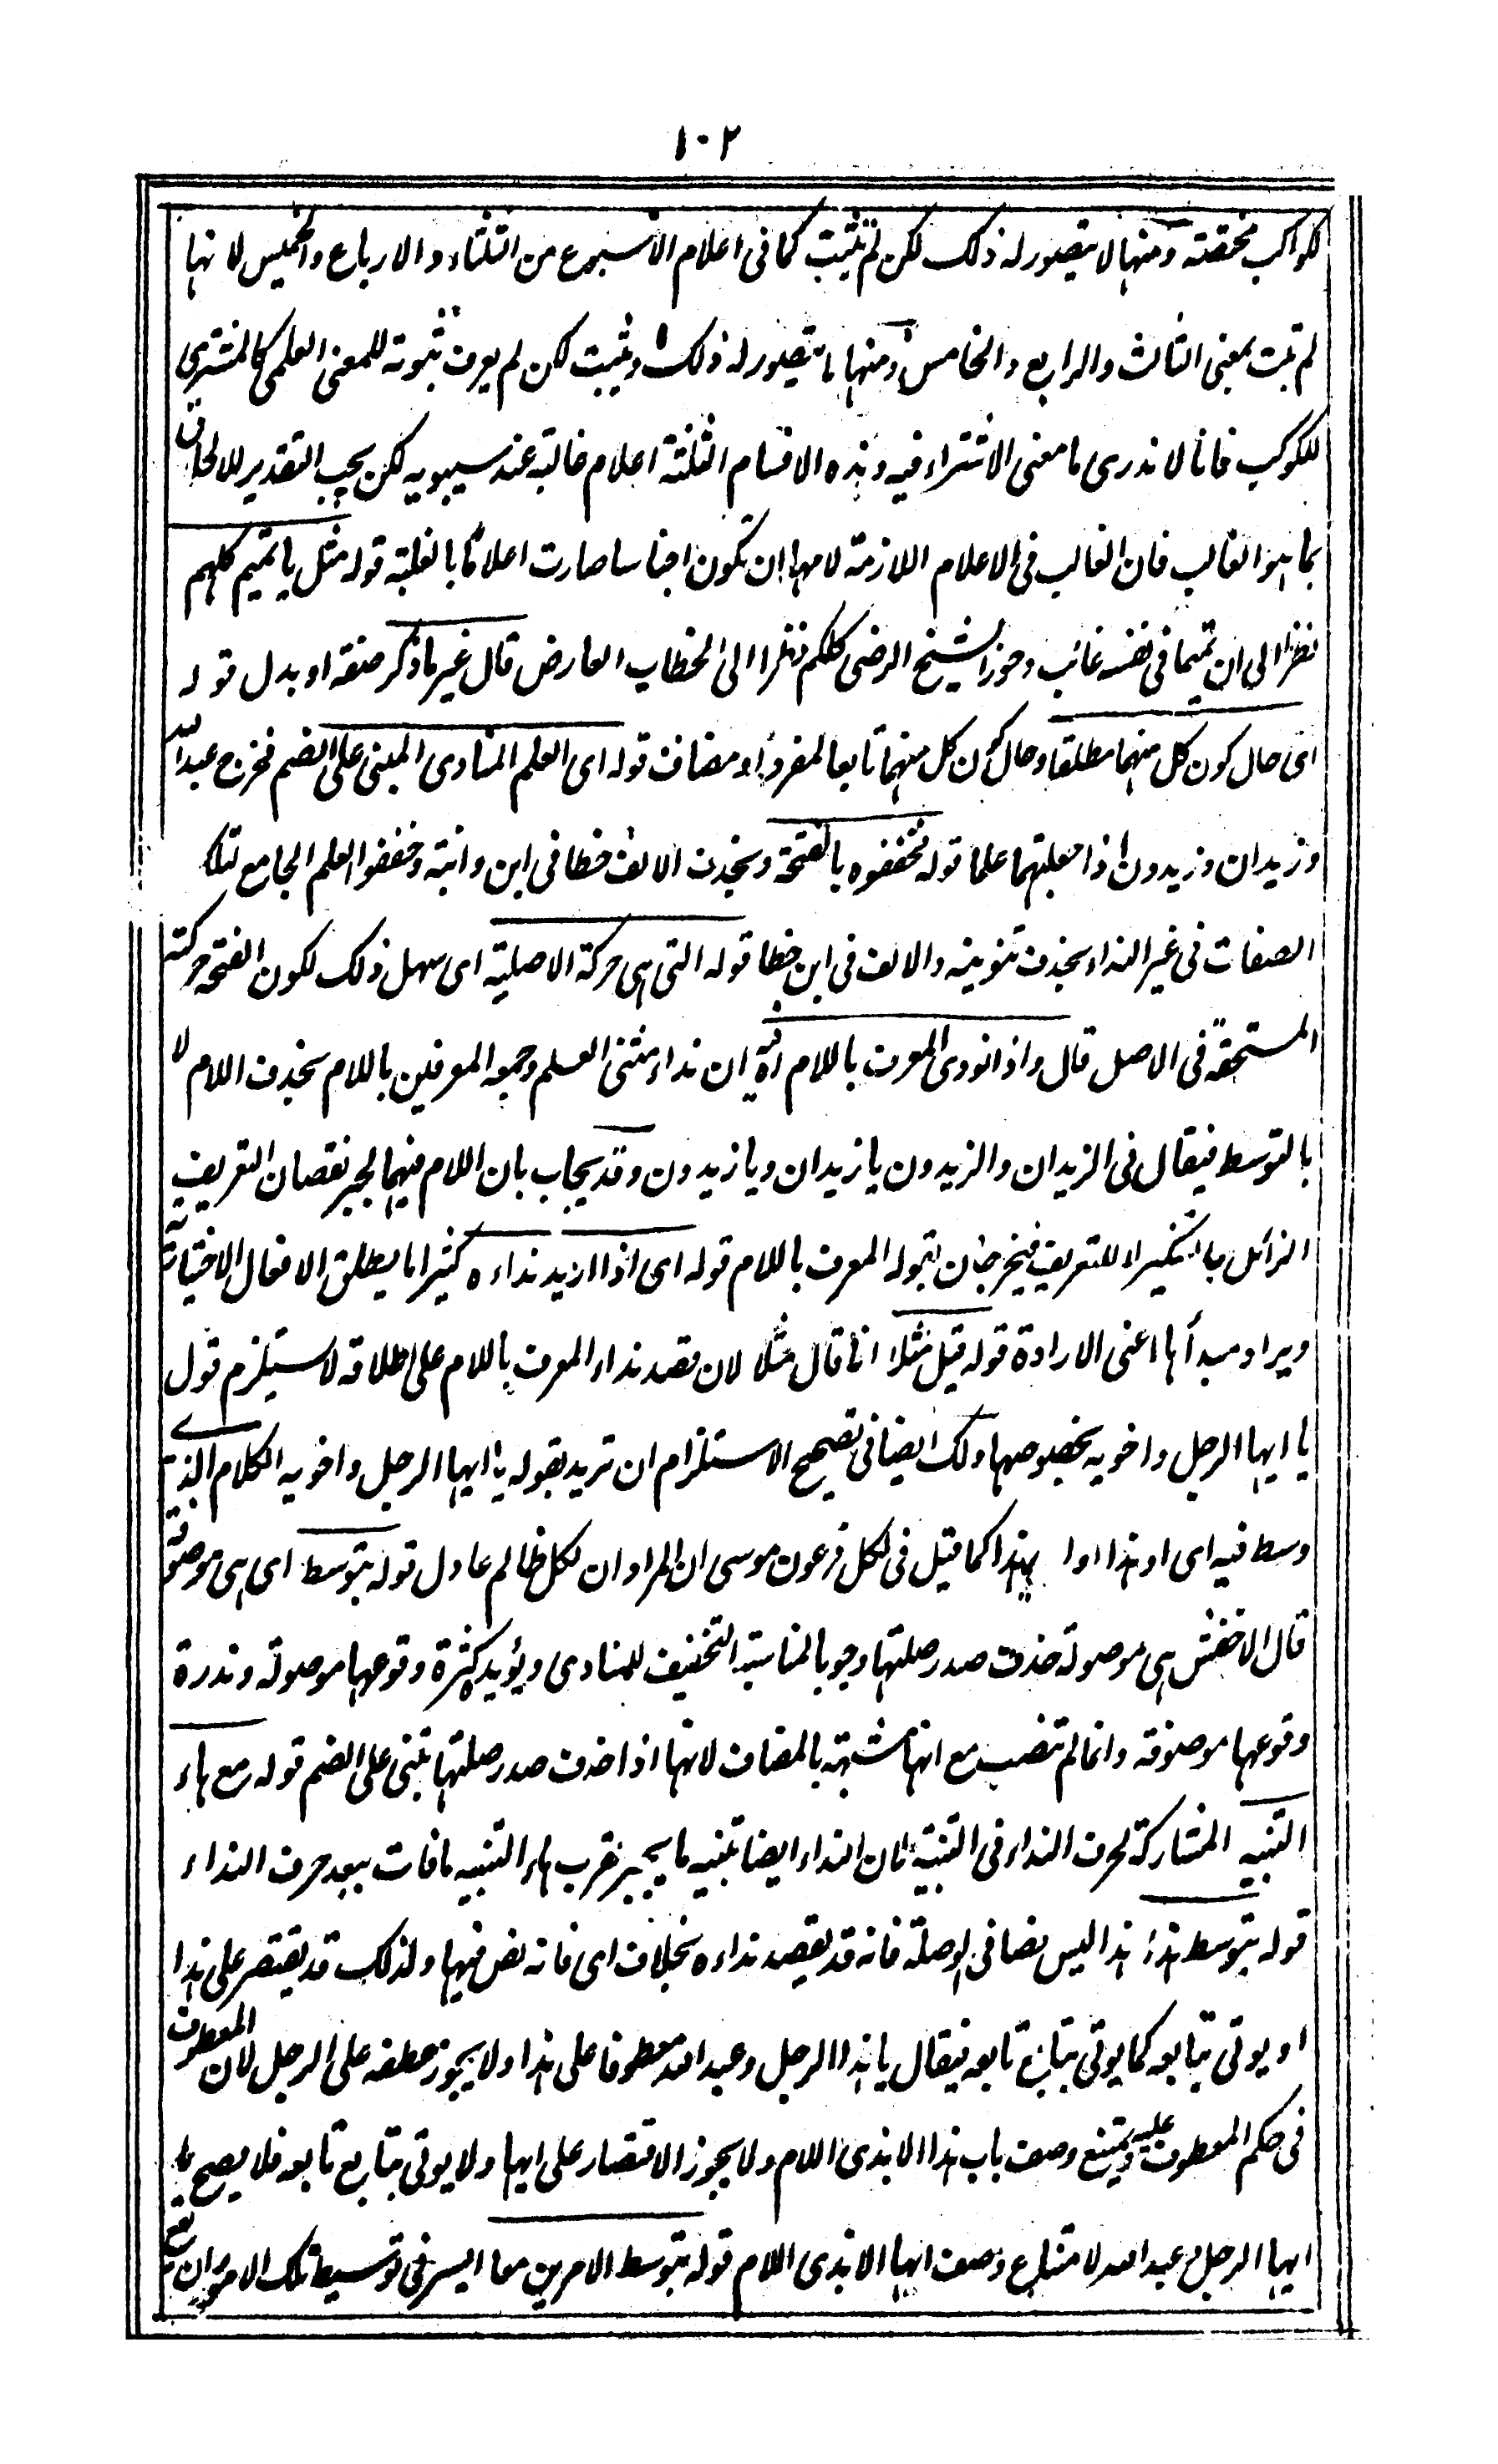 ١٠٢
لكواكب مخصته ومنها لا يتصور له ذلك لكن لم يثبت كما فى اعلام الاسبوع من الثلثاء والارباع والخميس لانها
لم تبت بمعنى الثالث والرابع والخامس ومنها ما يتصور له ذلك ويثبت لكن لم يعرف ثبوته للمعنى العلمى كالمشترى
للكوكب فانا لا ندرى ما معنى الاشتراء فيه وهذه الاقسام الثلثة اعلام غالبة عند سيبويه لكن يجب التقدير للالحاق
بما هو الغالب فان الغالب فى الاعلام اللازمة لامها ان تكون اجناسا صارت اعلاما بالغلبة قوله مثل يا تميم كلهم
نظرا الى ان تميما فى نفسه غائب وجوز الشيخ الرضى كلكم نظرا الى الخطاب العارض قال غير ما ذكر صفة او بدل قوله
اى حال كون كل منهما مطلقا وحال كون كل منهما تابعا لمفرد او مضاف قوله اى العلم المنادى المبنى على الضم فخرج عبد الله
وزيدان وزيدون اذا جعلتهما علما قوله فخففوه بالفتحة وبحذف الالف خطا فى ابن وابنة وخففوا العلم الجامع لتلك
الصفات فى غير النداء بحذف تنوينه والالف فى ابن خطا قوله التى هى حركة الاصلية اى سهل ذلك لكون الفتحة حركته
المستحقة فى الاصل قال واذا نودى المعرف باللام فيه ان نداء مثنى العلم وجمعه المعرفين باللام بحذف اللام لا
بالتوسط فيقال فى الزيدان والزيدون يا زيدان ويا زيدون وقد يجاب بان اللام فيهما لجبر نقصان التعريف
الزائل بالتنكير لا للتعريف فيخرجان بقوله المعرف باللام قوله اى اذا اريد نداءه كثيرا ما يطلق الافعال الاختيارية
ويراد مبدأها اعنى الارادة قوله قيل مثلا انما قال مثلا لان قصد نداء المعرف باللام على اطلاقه لا يستلزم قول
يا ايها الرجل واخويه بخصوصها ولك ايضا فى تصحيح الاستلزام ان تريد بقوله يا ايها الرجل واخويه الكلام الذى
وسط فيه اى او هذا او ايهذا كما قيل فى لكل فرعون موسى ان المراد ان لكل ظالم عادل قوله بتوسط اى هى موصوفة
قال الاخفش هى موصولة حذف صدر صلتها وجوبا لمناسبة التخفيف للمنادى ويؤيد كثرة وقوعها موصولة وندرة
وقوعها موصوفة وانما لم تنصب مع انها مشبهة بالمضاف لانها اذا حذف صدر صلتها تبنى على الضم قوله مع هاء
التنبيه المشاركة لحرف النداء فى التنبيه فان النداء ايضا تنبيه ما يجبر بقرب هاء التنبيه ما فات ببعد حرف النداء
قوله بتوسط هذا هذا ليس نصا فى الوصلة فانه قد يقصد نداءه بخلاف اى فانه نص فيها ولذلك قد يقتصر على هذا
او يوتى بتابعه كما يوتى بتابع تابعه فيقال يا هذا الرجل وعبد الله معطوفا على هذا ولا يجوز عطفه على الرجل لان المعطوف
فى حكم المعطوف عليه ويمتنع وصف باب هذا الا بذى اللام ولا يجوز الاقتصار على ايها ولا يوتى بتابع تابعه فلا يصح يا
ايها الرجل وعبد الله لامتناع وصف ايها الا بذى اللام قوله بتوسط الامرين معا السر فى توسيط تلك الامور ان